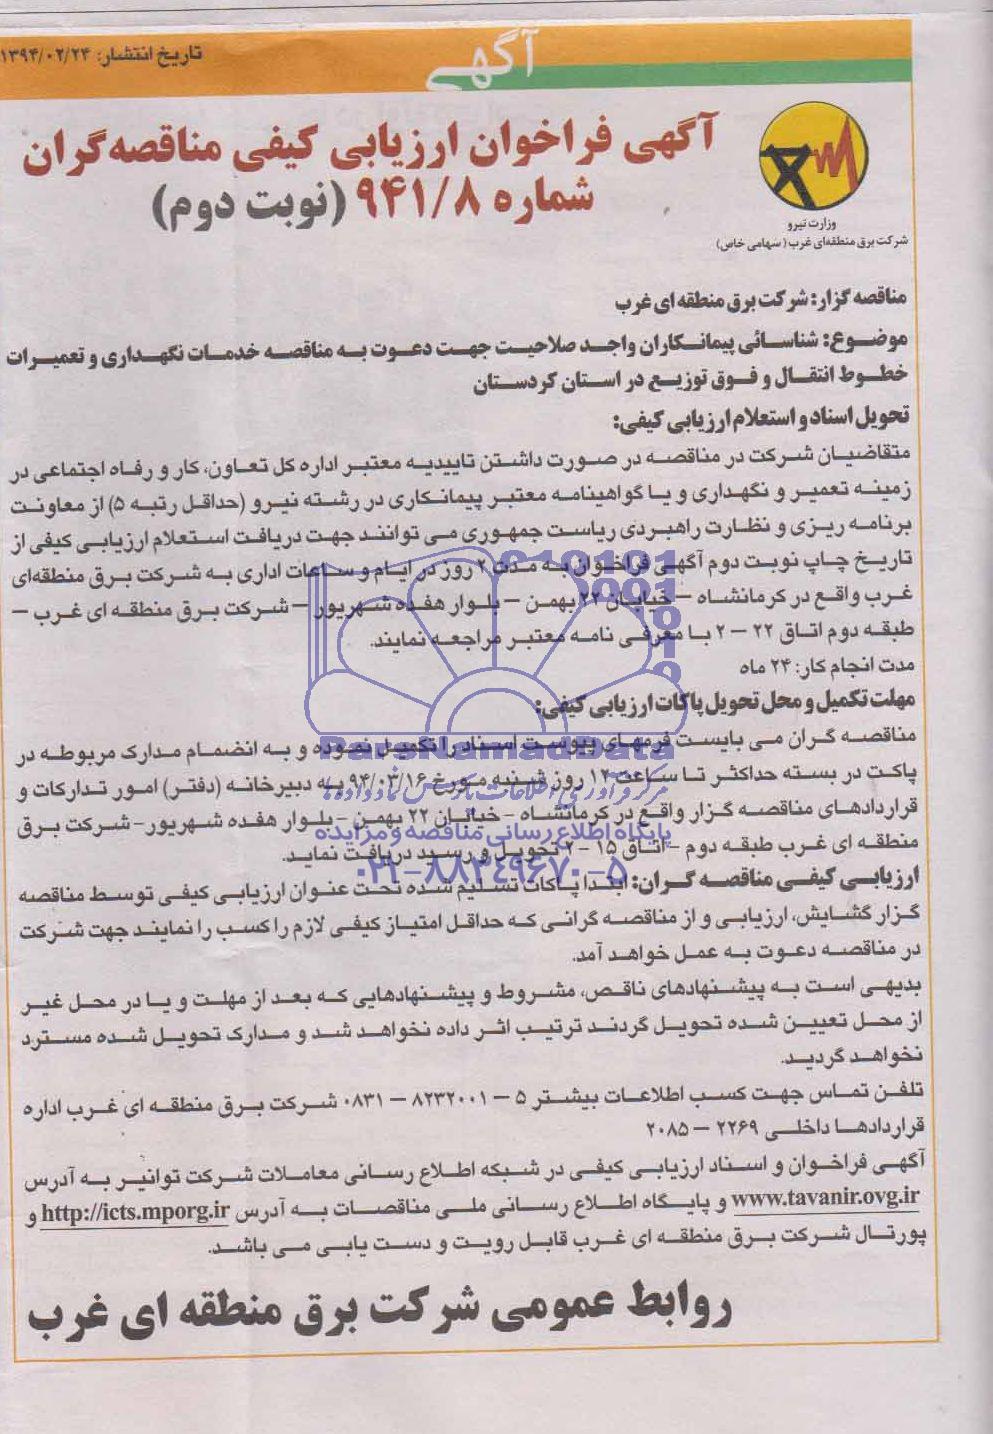 آگهی
تاریخ انتشار: ۱۳۹۴/۰۲/۲۴
آگهی فراخوان ارزیابی کیفی مناقصه‌گران
شماره ۹۴۱/۸ (نوبت دوم)
وزارت نیرو
شرکت برق منطقه‌ای غرب (سهامی خاص)
مناقصه گزار: شرکت برق منطقه ای غرب
موضوع: شناسائی پیمانکاران واجد صلاحیت جهت دعوت به مناقصه خدمات نگهداری و تعمیرات
خطوط انتقال و فوق توزیع در استان کردستان
تحویل اسناد و استعلام ارزیابی کیفی:
متقاضیان شرکت در مناقصه در صورت داشتن تاییدیه معتبر اداره کل تعاون، کار و رفاه اجتماعی در
زمینه تعمیر و نگهداری و یا گواهینامه معتبر پیمانکاری در رشته نیرو (حداقل رتبه ۵) از معاونت
برنامه ریزی و نظارت راهبردی ریاست جمهوری می توانند جهت دریافت استعلام ارزیابی کیفی از
تاریخ چاپ نوبت دوم آگهی فراخوان به مدت ۲ روز در ایام و ساعات اداری به شرکت برق منطقه‌ای
غرب واقع در کرمانشاه – خیابان ۲۲ بهمن – بلوار هفده شهریور – شرکت برق منطقه ای غرب –
طبقه دوم اتاق ۲۲ – ۲ با معرفی نامه معتبر مراجعه نمایند.
مدت انجام کار: ۲۴ ماه
مهلت تکمیل و محل تحویل پاکات ارزیابی کیفی:
مناقصه گران می بایست فرمهای پیوست اسناد را تکمیل نموده و به انضمام مدارک مربوطه در
پاکت در بسته حداکثر تا ساعت ۱۲ روز شنبه مورخ ۹۴/۰۳/۱۶ به دبیرخانه (دفتر) امور تدارکات و
قراردادهای مناقصه گزار واقع در کرمانشاه - خیابان ۲۲ بهمن - بلوار هفده شهریور- شرکت برق
منطقه ای غرب طبقه دوم - اتاق ۱۵ - ۲ تحویل و رسید دریافت نماید.
ارزیابی کیفی مناقصه گران: ابتدا پاکات تسلیم شده تحت عنوان ارزیابی کیفی توسط مناقصه
گزار گشایش، ارزیابی و از مناقصه گرانی که حداقل امتیاز کیفی لازم را کسب را نمایند جهت شرکت
در مناقصه دعوت به عمل خواهد آمد.
بدیهی است به پیشنهادهای ناقص، مشروط و پیشنهادهایی که بعد از مهلت و یا در محل غیر
از محل تعیین شده تحویل گردند ترتیب اثر داده نخواهد شد و مدارک تحویل شده مسترد
نخواهد گردید.
تلفن تماس جهت کسب اطلاعات بیشتر ۵ – ۸۲۳۲۰۰۱ – ۰۸۳۱ شرکت برق منطقه ای غرب اداره
قراردادها داخلی ۲۲۶۹ – ۲۰۸۵
آگهی فراخوان و اسناد ارزیابی کیفی در شبکه اطلاع رسانی معاملات شرکت توانیر به آدرس
www.tavanir.ovg.ir و پایگاه اطلاع رسانی ملی مناقصات به آدرس http://icts.mporg.ir و
پورتال شرکت برق منطقه ای غرب قابل رویت و دست یابی می باشد.
روابط عمومی شرکت برق منطقه ای غرب
ParsNamadData
مرکز فرآوری اطلاعات پارس نماد داده ها
پایگاه اطلاع رسانی مناقصه و مزایده
۰۲۱-۸۸۳۴۹۶۷۰-۵